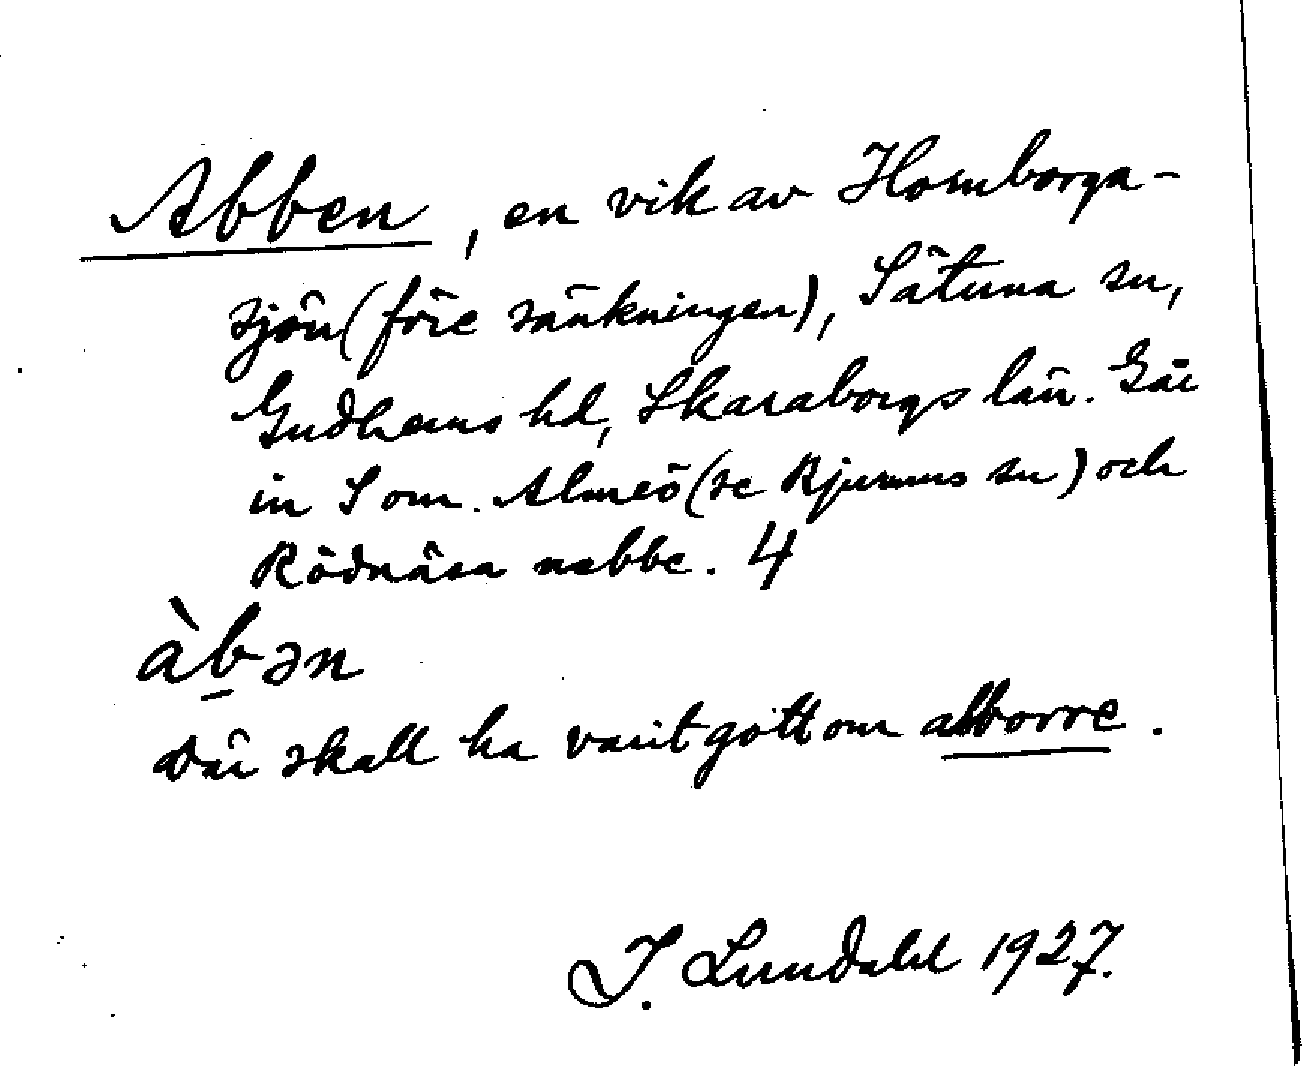 Abben, en vik av Hornborga-
sjön (före sänkningen), Sätuna sn,
Gudhems hd, Skaraborgs län. Går
in S om. Almeö (se Bjurums sn) och
Rödnäsa nabbe. 4
àb̲ən
Där skall ha varit gott om abborre.
I. Lundahl 1927.